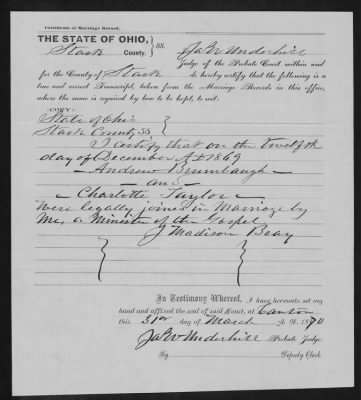 Certificate of Marriage Record.
THE STATE OF OHIO,
Stark County. } SS. Ja S Underhill
Judge of the Probate Court within and
for the County of Stark do hereby certify that the following is a
true and correct Transcript, taken from the Marriage Records in this office,
where the same is required by law to be kept, to wit:
COPY:
State of Ohio
Stark County SS }
I certify that on the Twelfth
day of December A D 1869
Andrew Brumbaugh
and
Charlotte Taylor
were legally joined in Marriage by
Me, a Minister of the Gospel
J Madison Bray
In Testimony Whereof, I have hereunto set my
hand and affixed the seal of said Court, at Canton
this 31st day of March A. D. 1870
Underhill Probate Judge.
By Deputy Clerk.